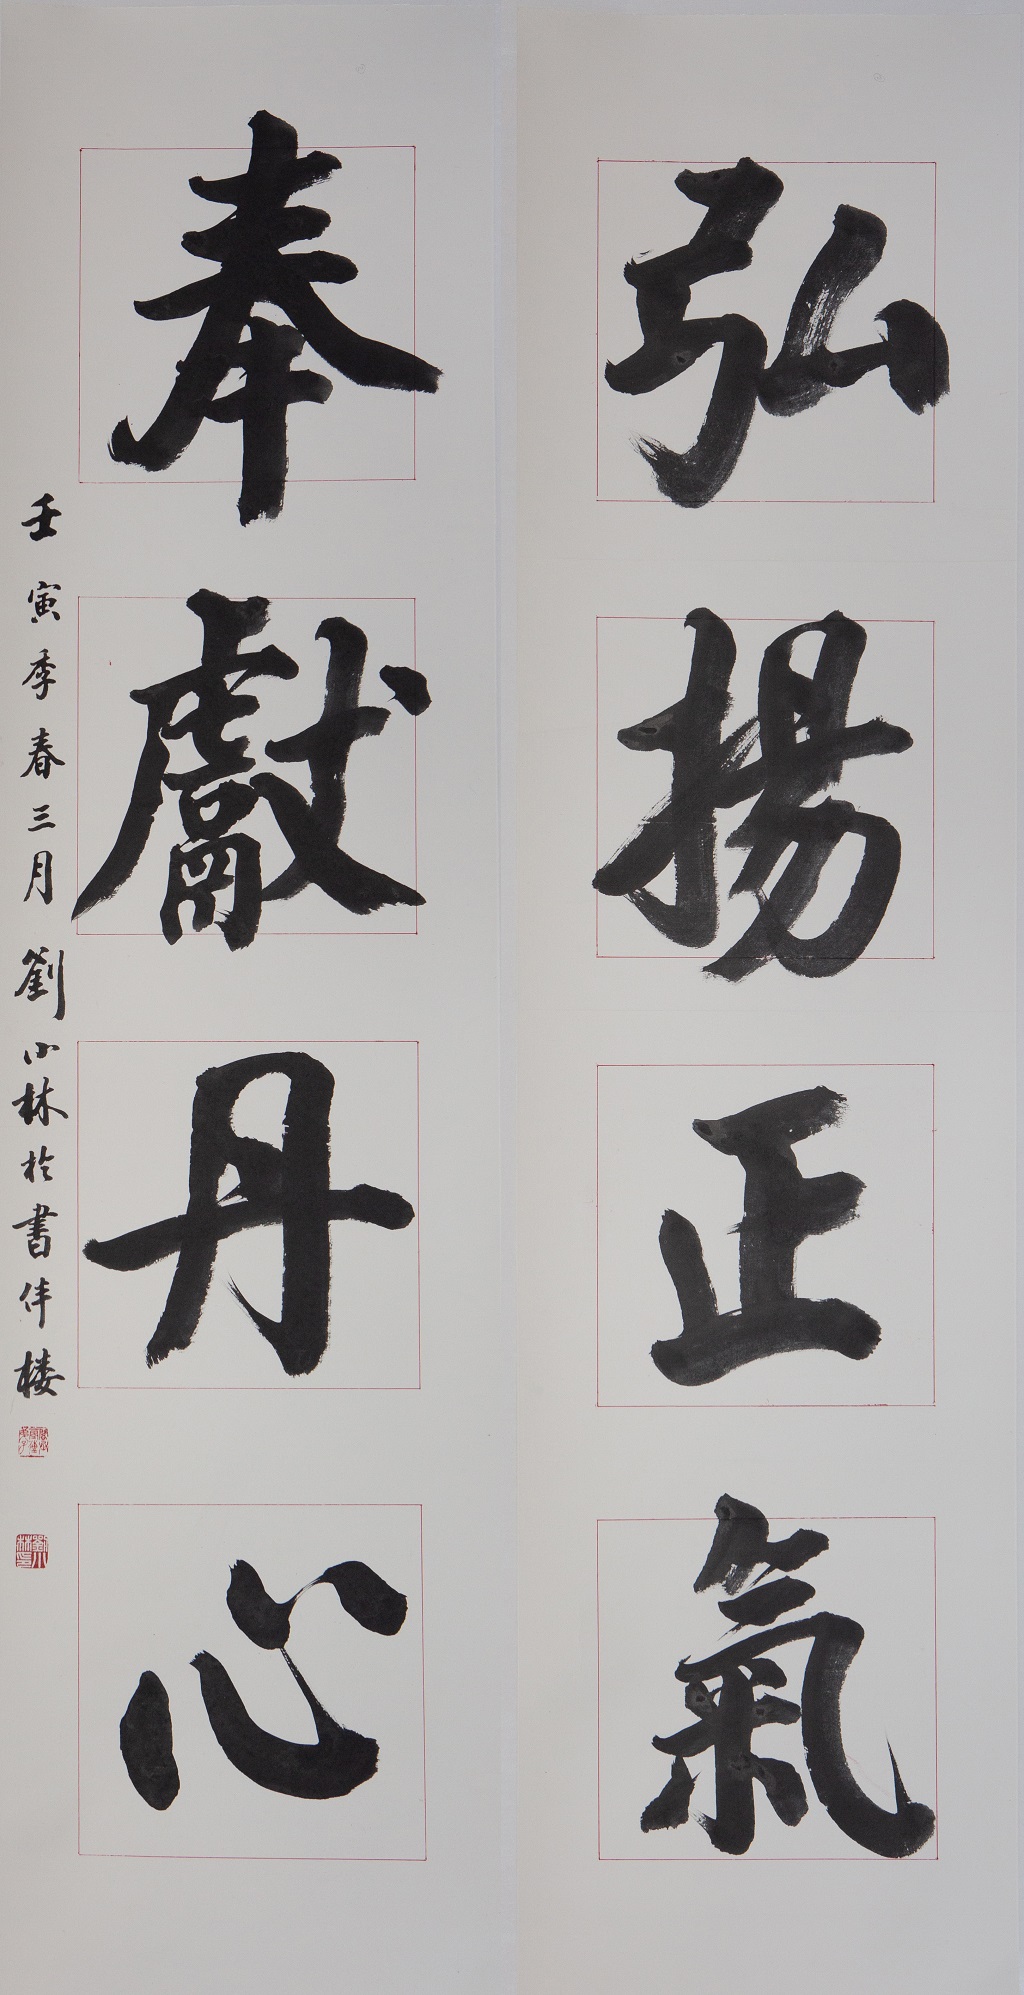 弘揚正氣
奉獻丹心
壬寅季春三月劉小林於書伴楼